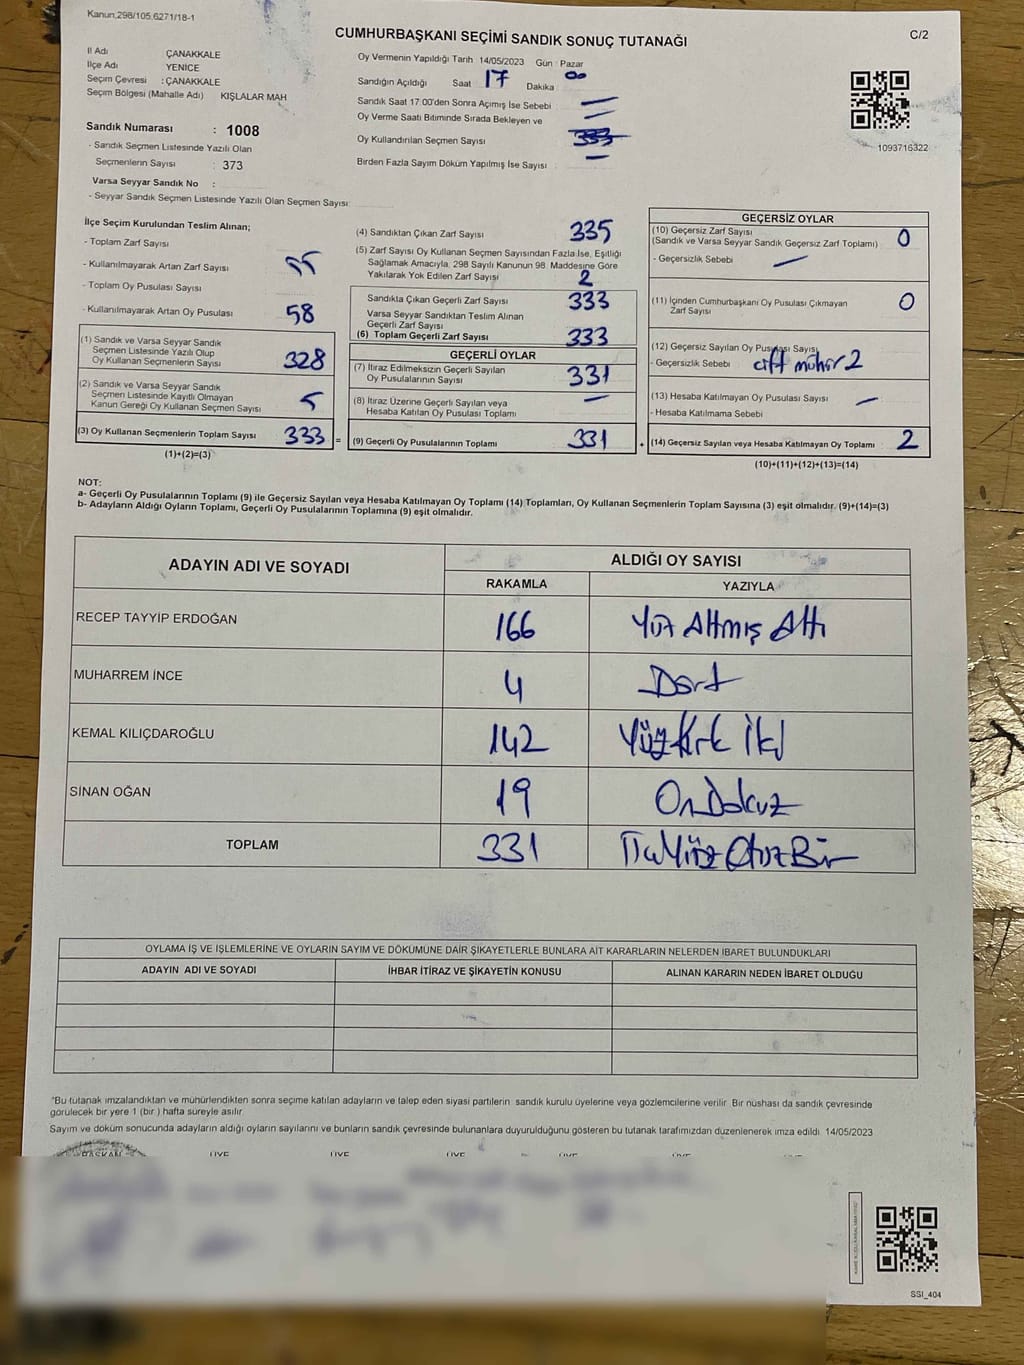 Kanun,298/105,6271/18-1
CUMHURBAŞKANI SEÇİMİ SANDIK SONUÇ TUTANAĞI
C/2
İl Adı ÇANAKKALE
İlçe Adı YENİCE
Seçim Çevresi : ÇANAKKALE
Seçim Bölgesi (Mahalle Adı) KIŞLALAR MAH
Sandık Numarası : 1008
- Sandık Seçmen Listesinde Yazılı Olan
Seçmenlerin Sayısı : 373
Varsa Seyyar Sandık No :
- Seyyar Sandık Seçmen Listesinde Yazılı Olan Seçmen Sayısı:
Oy Vermenin Yapıldığı Tarih 14/05/2023 Gün : Pazar
Sandığın Açıldığı Saat 17 Dakika 00
Sandık Saat 17:00'den Sonra Açımış İse Sebebi —
Oy Verme Saati Bitiminde Sırada Bekleyen ve —
Oy Kullandırılan Seçmen Sayısı 333
Birden Fazla Sayım Döküm Yapılmış İse Sayısı : —
1093716322
İlçe Seçim Kurulundan Teslim Alınan;
- Toplam Zarf Sayısı
- Kullanılmayarak Artan Zarf Sayısı : 55
- Toplam Oy Pusulası Sayısı
- Kullanılmayarak Artan Oy Pusulası 58
(1) Sandık ve Varsa Seyyar Sandık
Seçmen Listesinde Yazılı Olup
Oy Kullanan Seçmenlerin Sayısı 328
(2) Sandık ve Varsa Seyyar Sandık
Seçmen Listesinde Kayıtlı Olmayan
Kanun Gereği Oy Kullanan Seçmen Sayısı 5
(3) Oy Kullanan Seçmenlerin Toplam Sayısı 333 =
(1)+(2)=(3)
(4) Sandıktan Çıkan Zarf Sayısı 335
(5) Zarf Sayısı Oy Kullanan Seçmen Sayısından Fazla İse, Eşitliği
Sağlamak Amacıyla, 298 Sayılı Kanunun 98. Maddesine Göre
Yakılarak Yok Edilen Zarf Sayısı 2
Sandıkta Çıkan Geçerli Zarf Sayısı 333
Varsa Seyyar Sandıktan Teslim Alınan
Geçerli Zarf Sayısı
(6) Toplam Geçerli Zarf Sayısı 333
GEÇERLİ OYLAR
(7) İtiraz Edilmeksizin Geçerli Sayılan
Oy Pusulalarının Sayısı 331
(8) İtiraz Üzerine Geçerli Sayılan veya
Hesaba Katılan Oy Pusulası Toplamı —
(9) Geçerli Oy Pusulalarının Toplamı 331 +
GEÇERSİZ OYLAR
(10) Geçersiz Zarf Sayısı
(Sandık ve Varsa Seyyar Sandık Geçersiz Zarf Toplamı) 0
- Geçersizlik Sebebi —
(11) İçinden Cumhurbaşkanı Oy Pusulası Çıkmayan
Zarf Sayısı 0
(12) Geçersiz Sayılan Oy Pusulası Sayısı
- Geçersizlik Sebebi çift mühür 2
(13) Hesaba Katılmayan Oy Pusulası Sayısı —
- Hesaba Katılmama Sebebi
(14) Geçersiz Sayılan veya Hesaba Katılmayan Oy Toplamı 2
(10)+(11)+(12)+(13)=(14)
NOT:
a- Geçerli Oy Pusulalarının Toplamı (9) ile Geçersiz Sayılan veya Hesaba Katılmayan Oy Toplamı (14) Toplamları, Oy Kullanan Seçmenlerin Toplam Sayısına (3) eşit olmalıdır. (9)+(14)=(3)
b- Adayların Aldığı Oyların Toplamı, Geçerli Oy Pusulalarının Toplamına (9) eşit olmalıdır.
ADAYIN ADI VE SOYADI ALDIĞI OY SAYISI
RAKAMLA YAZIYLA
RECEP TAYYİP ERDOĞAN 166 Yüz Altmış Altı
MUHARREM İNCE 4 Dört
KEMAL KILIÇDAROĞLU 142 Yüz Kırk İki
SİNAN OĞAN 19 On Dokuz
TOPLAM 331 Üç Yüz Otuz Bir
OYLAMA İŞ VE İŞLEMLERİNE VE OYLARIN SAYIM VE DÖKÜMÜNE DAİR ŞİKAYETLERLE BUNLARA AİT KARARLARIN NELERDEN İBARET BULUNDUKLARI
ADAYIN ADI VE SOYADI İHBAR İTİRAZ VE ŞİKAYETİN KONUSU ALINAN KARARIN NEDEN İBARET OLDUĞU
*Bu tutanak imzalandıktan ve mühürlendikten sonra seçime katılan adayların ve talep eden siyasi partilerin sandık kurulu üyelerine veya gözlemcilerine verilir. Bir nüshası da sandık çevresinde
görülecek bir yere 1 (bir ) hafta süreyle asılır.
Sayım ve döküm sonucunda adayların aldığı oyların sayılarını ve bunların sandık çevresinde bulunanlara duyurulduğunu gösteren bu tutanak tarafımızdan düzenlenerek imza edildi. 14/05/2023
BAŞKAN ÜYE ÜYE ÜYE ÜYE ÜYE ÜYE
SSI_404